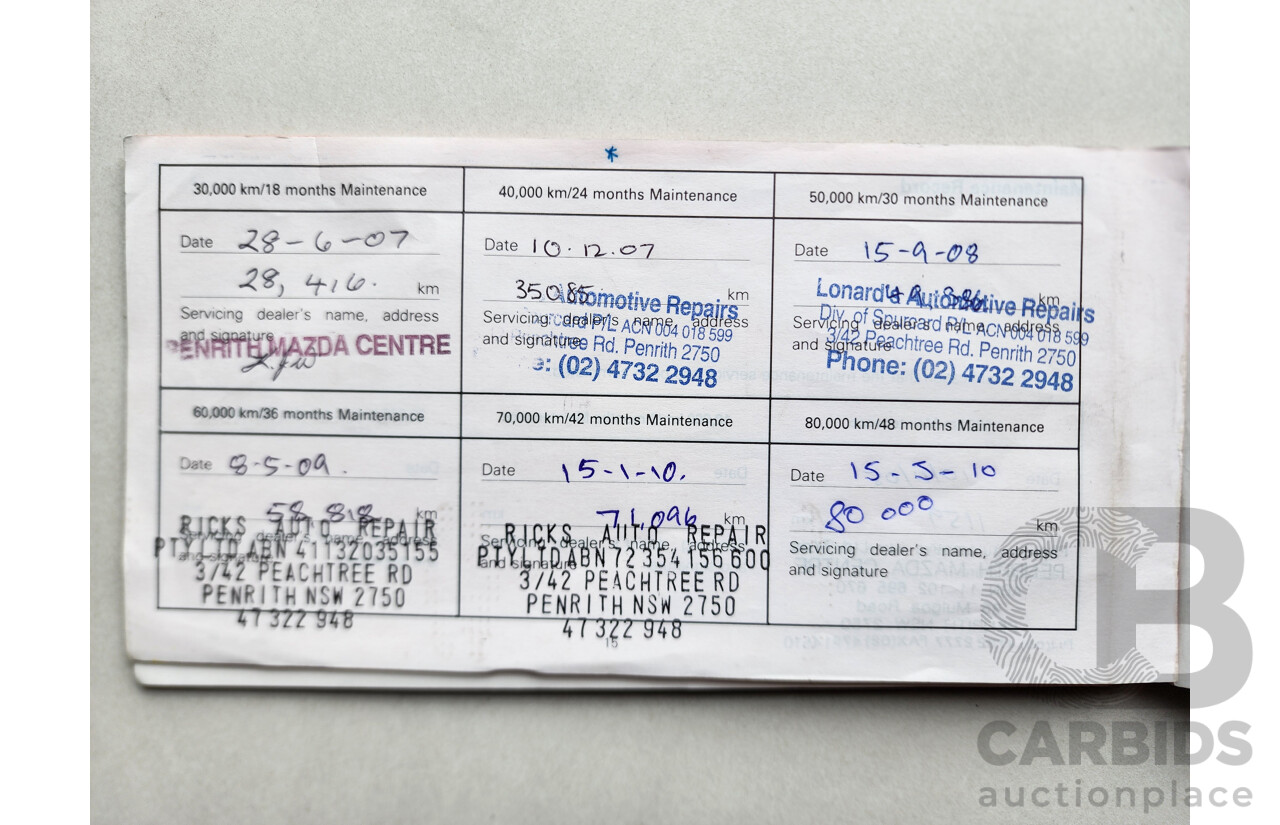 *
30,000 km/18 months Maintenance
Date 28-6-07
28,416. km
Servicing dealer's name, address
and signature
PENRITH MAZDA CENTRE
40,000 km/24 months Maintenance
Date 10.12.07
35085 km
Servicing dealer's name, address
and signature
Automotive Repairs
P/L ACN 004 018 599
Rd. Penrith 2750
e: (02) 4732 2948
50,000 km/30 months Maintenance
Date 15-9-08
km
Servicing dealer's name, address
and signature
Lonard's Automotive Repairs
Div. of Spurcard P/L ACN 004 018 599
3/42 Peachtree Rd. Penrith 2750
Phone: (02) 4732 2948
60,000 km/36 months Maintenance
Date 8-5-09.
58 818 km
Servicing dealer's name, address
and signature
RICKS AUTO REPAIR
PTY LTD ABN 41132035155
3/42 PEACHTREE RD
PENRITH NSW 2750
47 322 948
70,000 km/42 months Maintenance
Date 15-1-10.
71,096 km
Servicing dealer's name, address
and signature
RICKS AUTO REPAIR
PTY LTD ABN 72 354 156 600
3/42 PEACHTREE RD
PENRITH NSW 2750
47 322 948
80,000 km/48 months Maintenance
Date 15-5-10
80 000 km
Servicing dealer's name, address
and signature
15
CB
CARBIDS
auctionplace